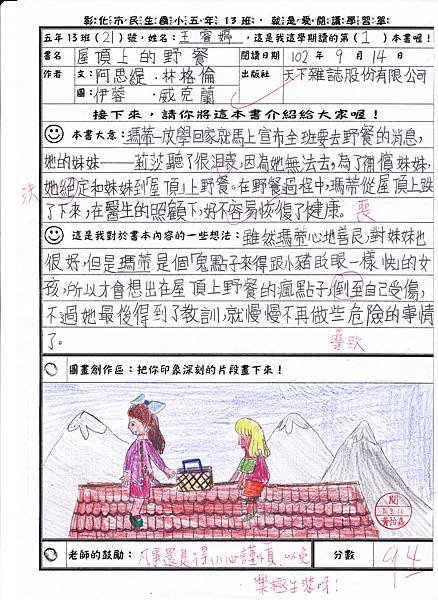 彰化市民生國小五年13班，就是愛閱讀學習單
五年13班(21)號，姓名：王睿嫻，這是我這學期讀的第(1)本書喔！
書名 屋頂上的野餐 閱讀日期 102年9月14日
作者 文：阿思緹．林格倫 出版社 天下雜誌股份有限公司
圖：伊蓉．威克蘭
接下來，請你將這本書介紹給大家喔！
本書大意：瑪蒂一放學回家就馬上宣布全班要去野餐的消息，
她的妹妹——莉莎聽了很沮喪，因為她無法去，為了補償妹妹，
她絕定和妹妹到「屋頂」上野餐。在野餐過程中，瑪蒂從屋頂上跌
決
了下來，在醫生的照顧下，好不容易恢復了健康。 喪
這是我對於書本內容的一些想法：雖然瑪蒂心地善良，對妹妹也
很好，但是瑪蒂是個「鬼點子來得跟小豬眨眼一樣快」的女
孩，所以才會想出在屋頂上野餐的瘋點子，倒至自己受傷，
不過她最後得到了教訓，就慢慢不再做些危險的事情
了。 導致
圖畫創作區：把你印象深刻的片段畫下來！
閱
黃怡嘉
老師的鼓勵： 凡事還是得小心謹慎，以免 分數 94
樂極生悲呀！